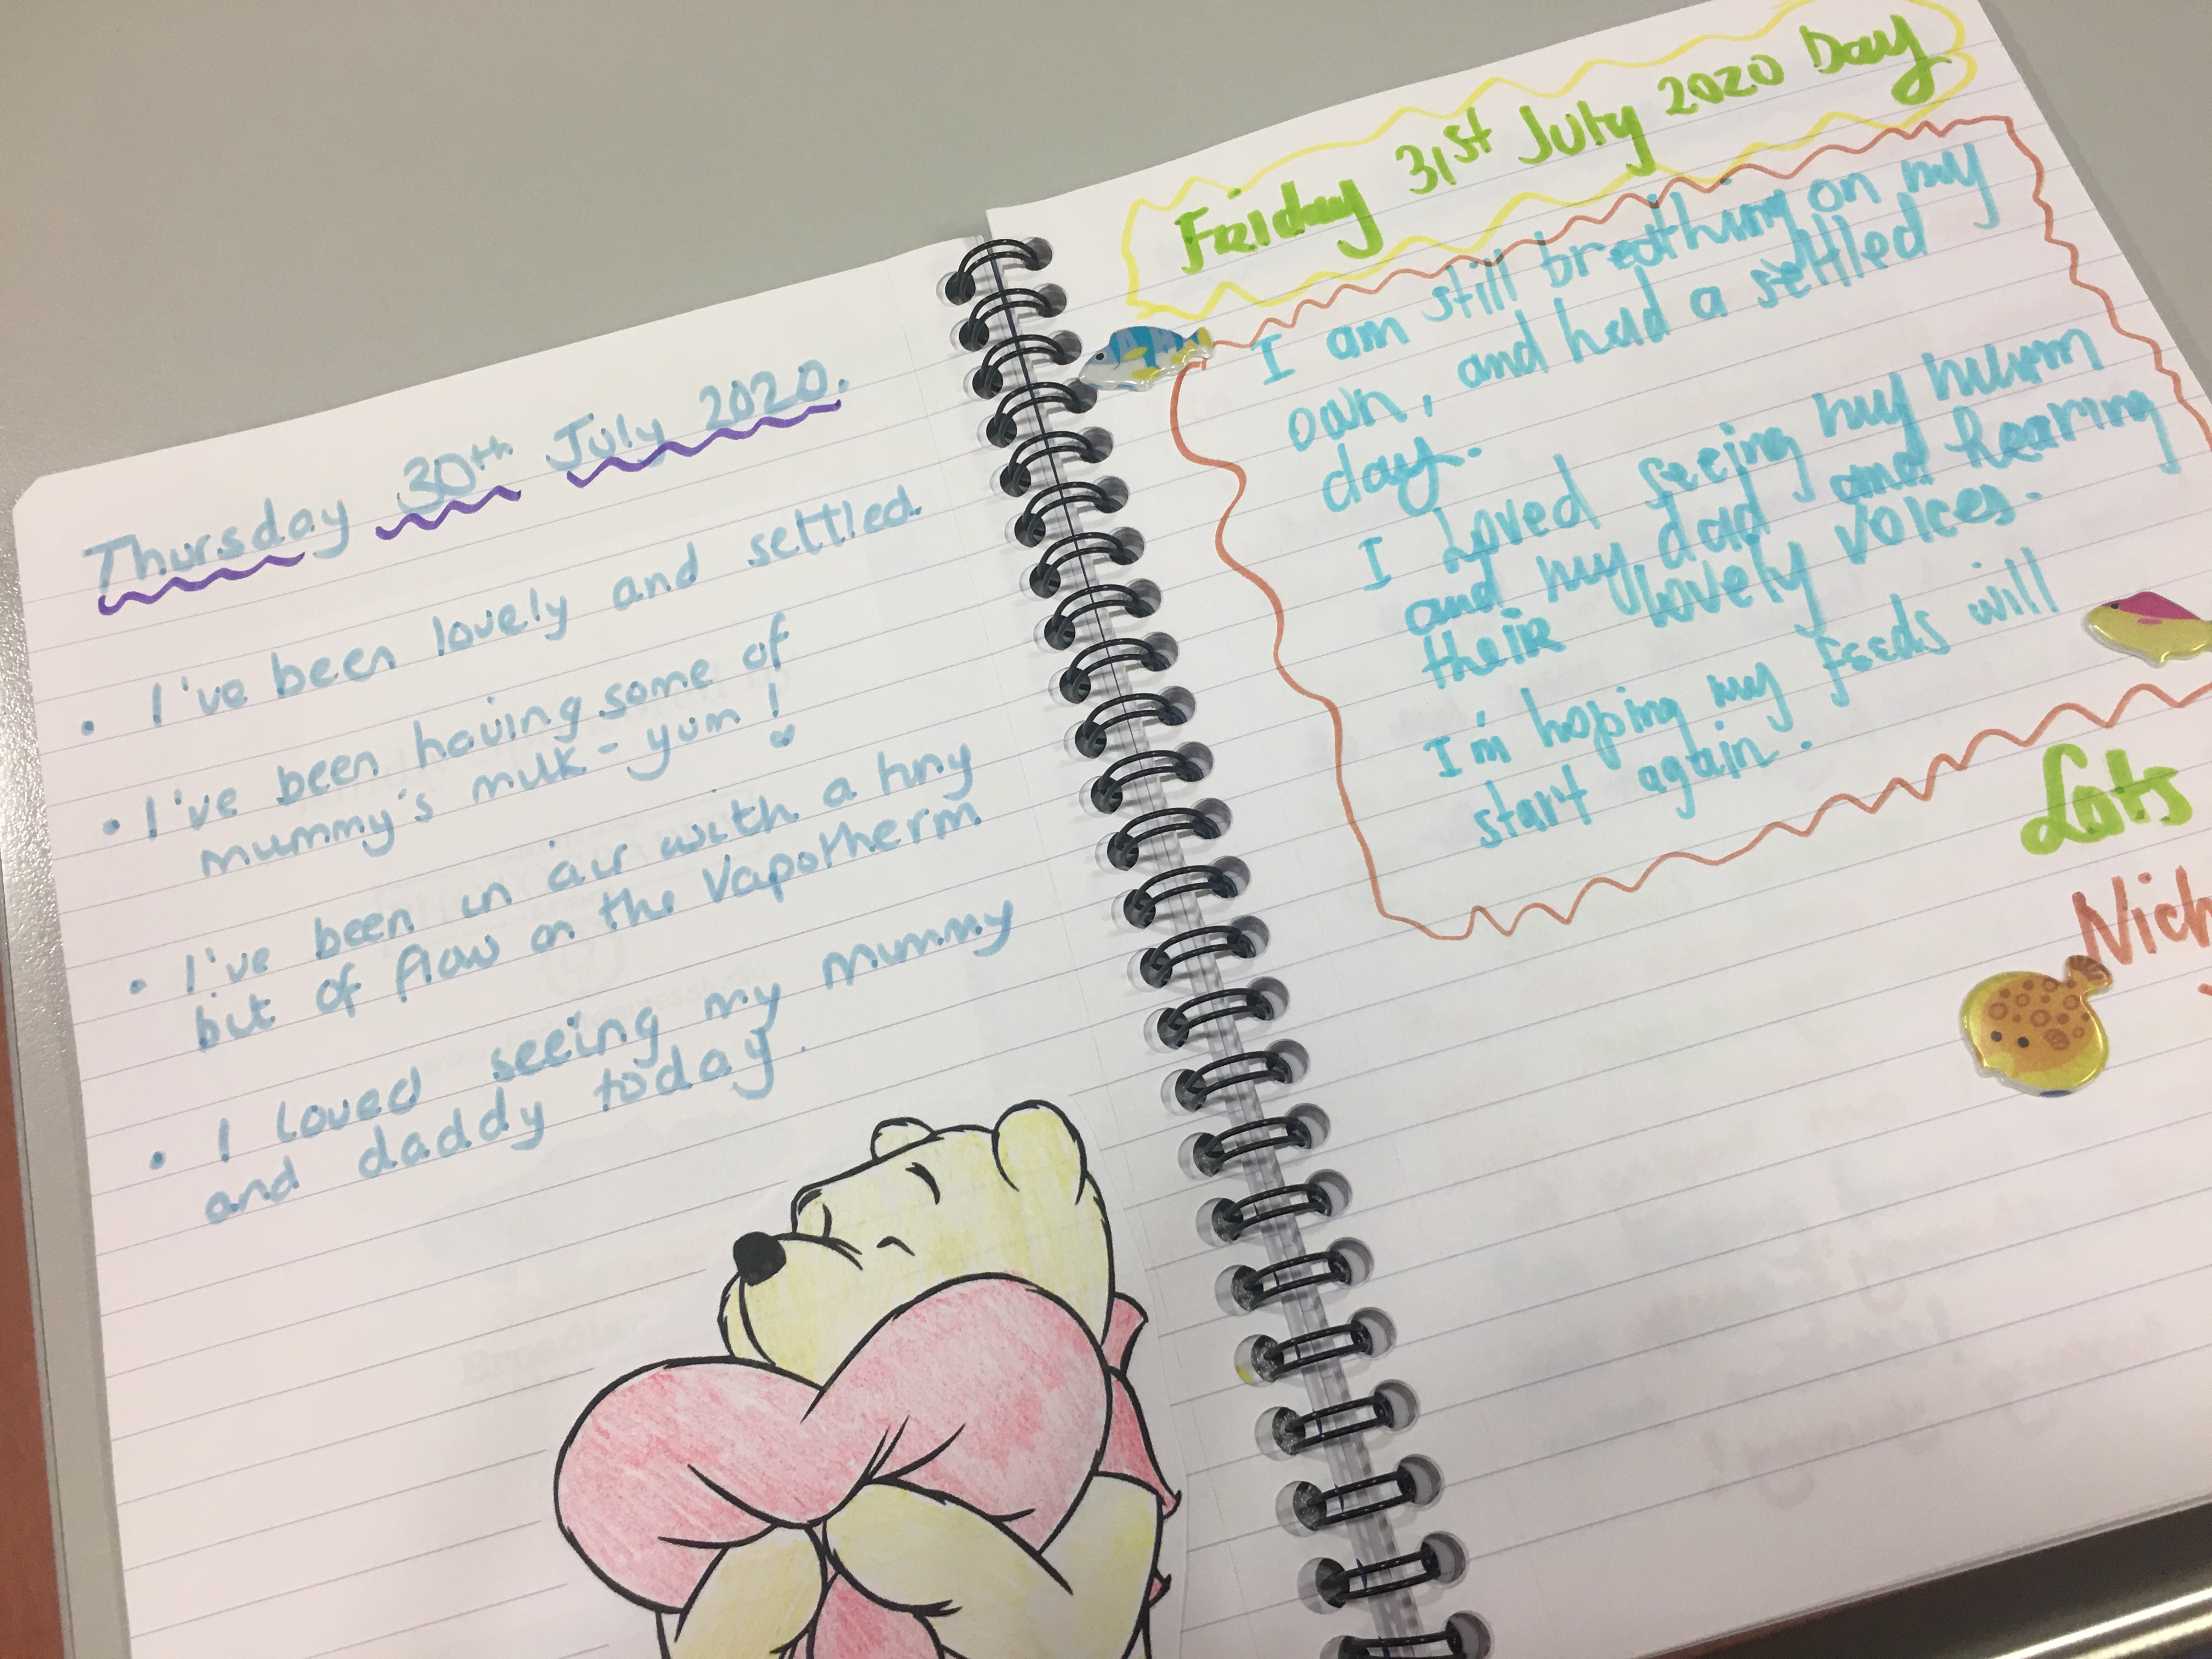 Thursday 30th July 2020.
• I've been lovely and settled.
• I've been having some of
mummy's milk - yum!
• I've been in air with a tiny
bit of flow on the Vapotherm
• I loved seeing my mummy
and daddy today.
Friday 31st July 2020 Day
I am still breathing on my
own, and had a settled
day.
I loved seeing my mum
and my dad and hearing
their lovely voices.
I'm hoping my feeds will
start again.
Lots